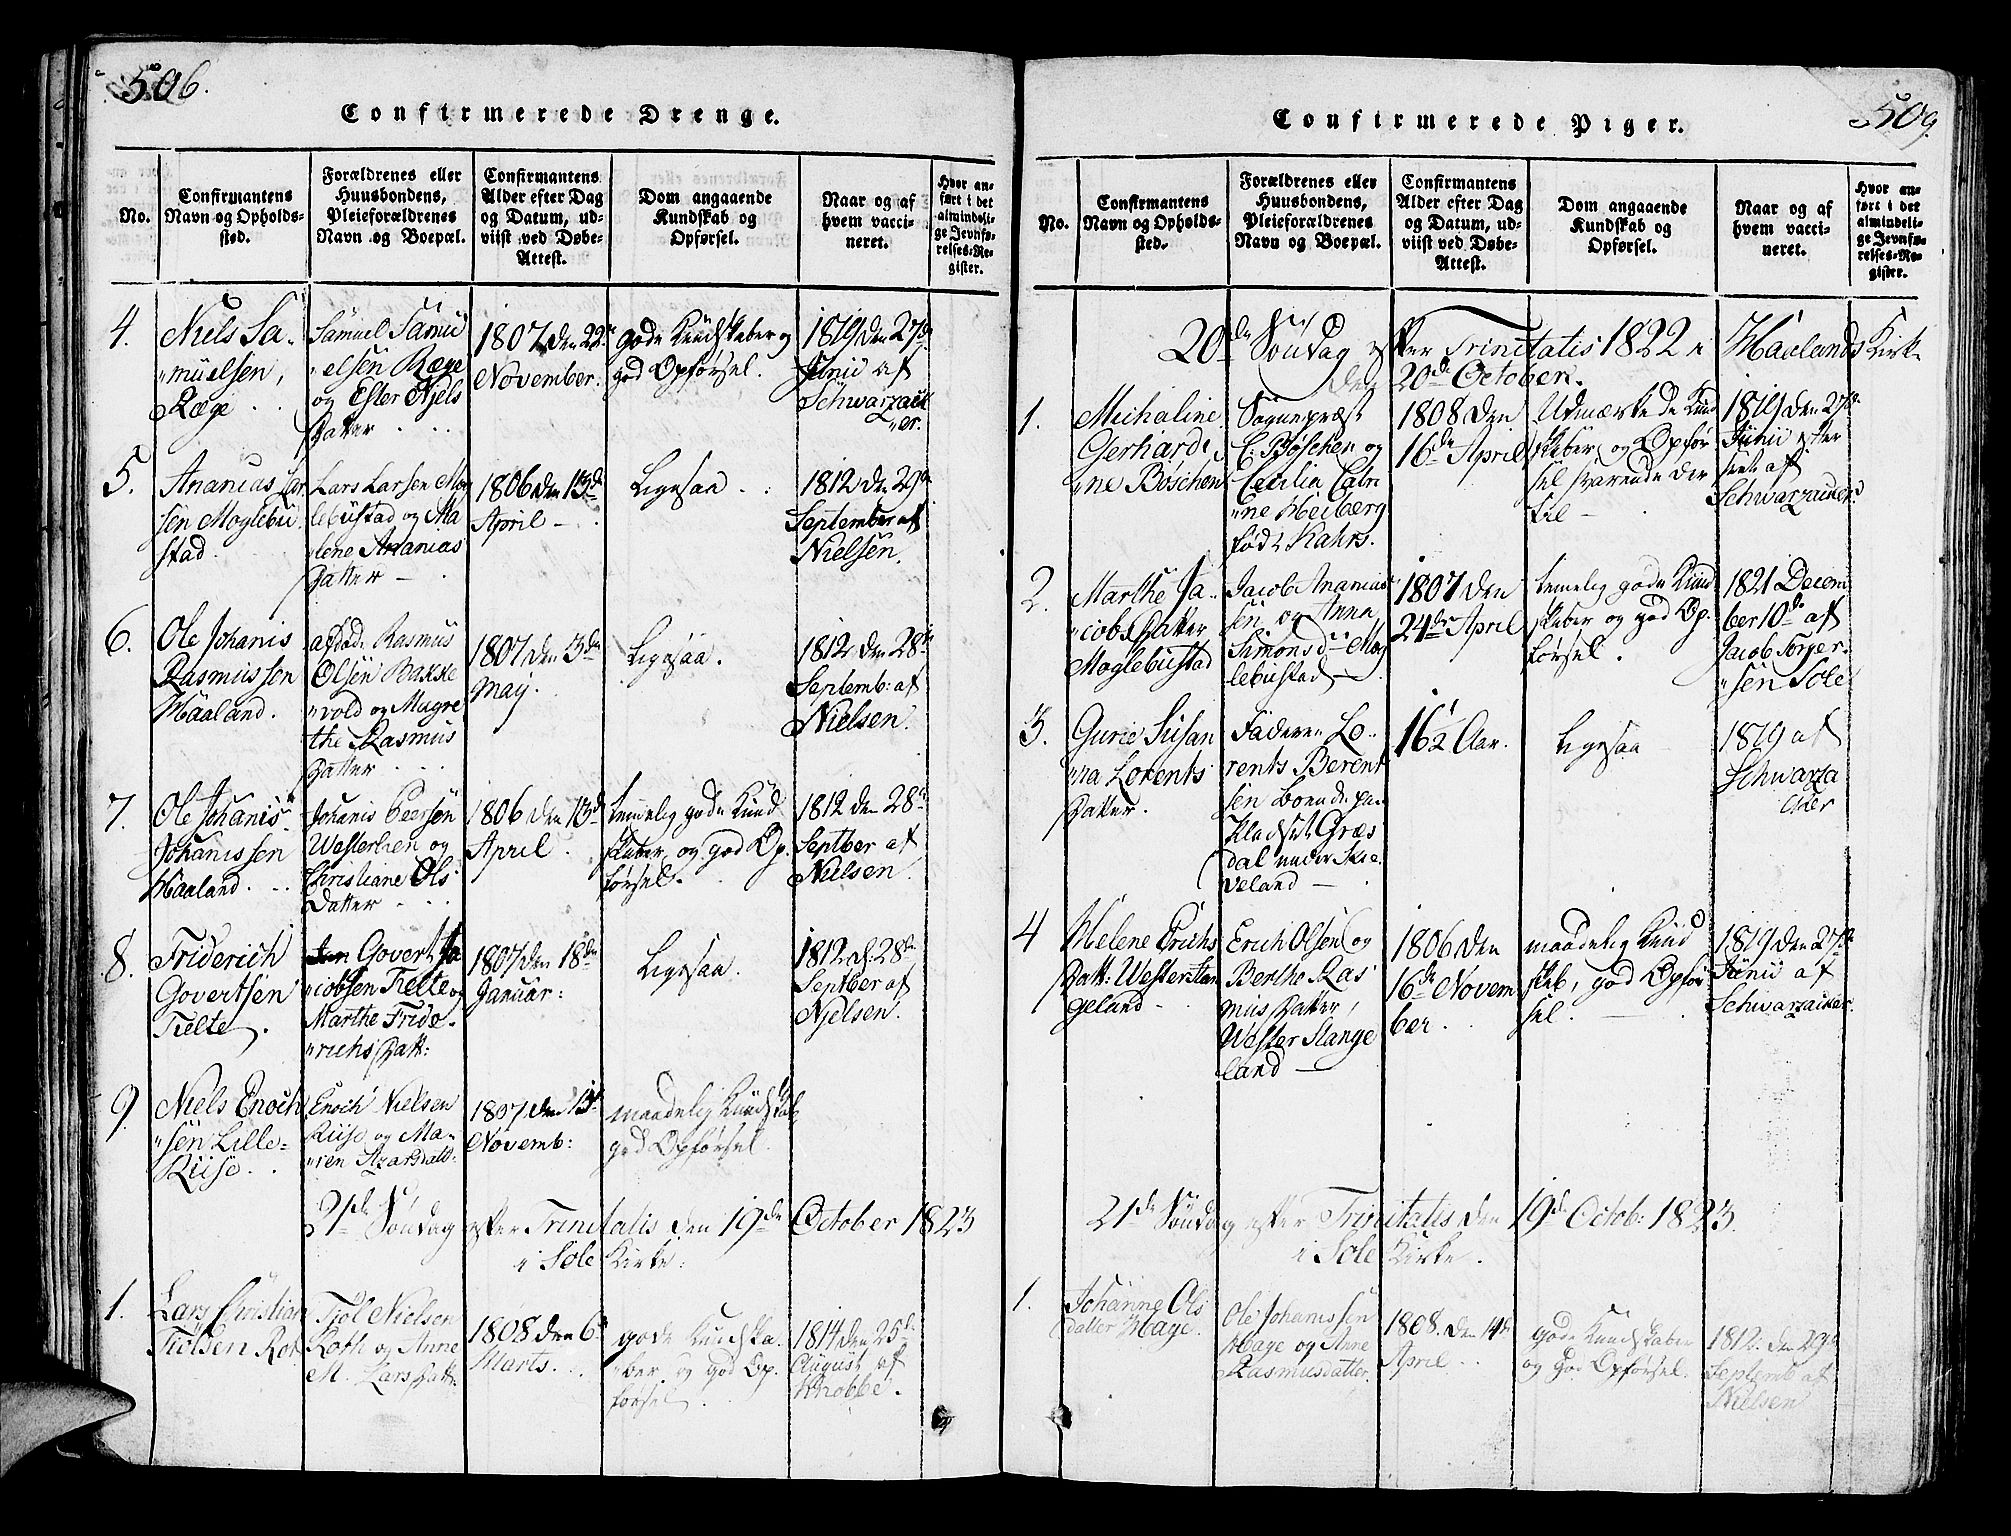 506.
Confirmerede Drenge.
No.
Confirmantens
Navn og Opholds-
sted.
Forældrenes eller
Huusbondens,
Pleieforældrenes
Navn og Boepæl.
Confirmantens
Alder efter Dag
og Datum, ud-
viist ved Døbe-
Attest.
Dom angaaende
Kundskab og
Opførsel.
Naar og af
hvem vacci-
neret.
Hvor an-
ført i det
almindeli-
ge Jevnfø-
relses-Re-
gister.
4.
Niels Sa-
muelsen,
Ræge
Samuel Samu
elsen Ræge
og Ester Njels
Datter
1807 den 22de
November.
gode Kundskaber og
god Opførsel.
1819 den 27de
Junii af
Schwarzack
er.
5.
Ananias Lar
sen Moglebu
stad.
Lars Larsen Mog
lebustad og Ma
lene Ananias
Datter
1806 den 13de
April
Ligesaa
1812 den 29de
September af
Nielsen.
6.
Ole Johanis
Rasmussen
Haaland.
afdøde Rasmus
Olsen Bakke
vold og Mugre
the Rasmus
Datter
1807 den 3de
May.
Ligesaa.
1812 den 28de
Septemb: af
Nielsen.
7.
Ole Johanis
Johanissen
Haaland.
Johanis Peersen
Westerhen og
Christiane Ols
Datter
1806 den 13de
April
temmelig gode Kund
skaber og god Op.
førsel.
1812 den 28de
Septber af
Nielsen
8.
Friderich
Govertsen
Tielte.
Govert Ja
cobsen Tielte og
Marthe Fride-
richs Datt:
1807 den 18de
Januar:
Ligesaa.
1812 d. 28de
Septber af
Njelsen.
9
Niels Enoch
sen Lille-
Riise.
Enoch Nielsen
Riise og Ma-
ren Azarsdatt:
1807 den 15de
Novemb:
maadelig Kundskab,
god Opførsel.
21de Søndag efter Trinitatis den 19de October 1823
i Sole Kirke:
1.
Lars Christian
Tiølsen Rot
Tjøl Nielsen
Roth og Anne
M. Lars Datt:
1808 den 6te
Marts.
gode Kundska
ber og god Op.
førsel
1814 den 25de
August af
Knobbe.
509.
Confirmerede Piger.
No.
Confirmantens
Navn og Opholds-
sted.
Forældrenes eller
Huusbondens,
Pleieforældrenes
Navn og Boepæl.
Confirmantens
Alder efter Dag
og Datum, ud-
viist ved Døbe-
Attest.
Dom angaaende
Kundskab og
Opførsel.
Naar og af
hvem vacci-
neret.
Hvor an-
ført i det
almindeli-
ge Jevnfø-
relses-Re-
gister.
20de Søndag efter Trinitatis 1822 i Haalands Kirk
den 20de October.
1.
Michaline
Gerhardi
ne Bøschen
Sognepræst
C. Bøschen og
Cecilia Catri
ne Heiberg
fød Kahrs.
1808 den
16de April
Udmærkede Kund
skaber, og Opfør
sel svarende der
til
1819 den 27de
Junii efter
af
Schwarzacker.
2.
Marthe Ja
cobs Datter
Moglebustad
Jacob Ananias
sen og Anna
Simonsd. Mog
lebustad
1807 den
24de April
temelig gode Kund
skaber og god Op.
førsel.
1821 Decem
ber 10de af
Jacob Torger
sen Sole
3.
Gurie Susan
na Lorents
Datter.
Faderen Lo-
rents Berent
sen boende pa
Pladset Græs
dal under Skie
veland
16½ Aar.
Ligesaa
1819 af
Schwarza
cker
4
Helene Erichs
Datt: Wester Stan
geland
Erich Olsen og
Berthe Ras
mus Datter,
Wester Stange
land
1806 den
16de Novem
ber.
maadelig Kund
skab, god Opfør
sel.
1819 den 27de
Junii af
Schwarzacker.
21de Søndag efter Trinitatis den 19de Octob: 1823.
i Sole Kirke.
1.
Johanne Ols
datter Hage.
Ole Johanissen
Hage og Anne
Rasmusdatter.
1808. den 14de
April
gode Kundskaber
og god Opførsel.
1812. den 29de
Septemb af
Nielsen